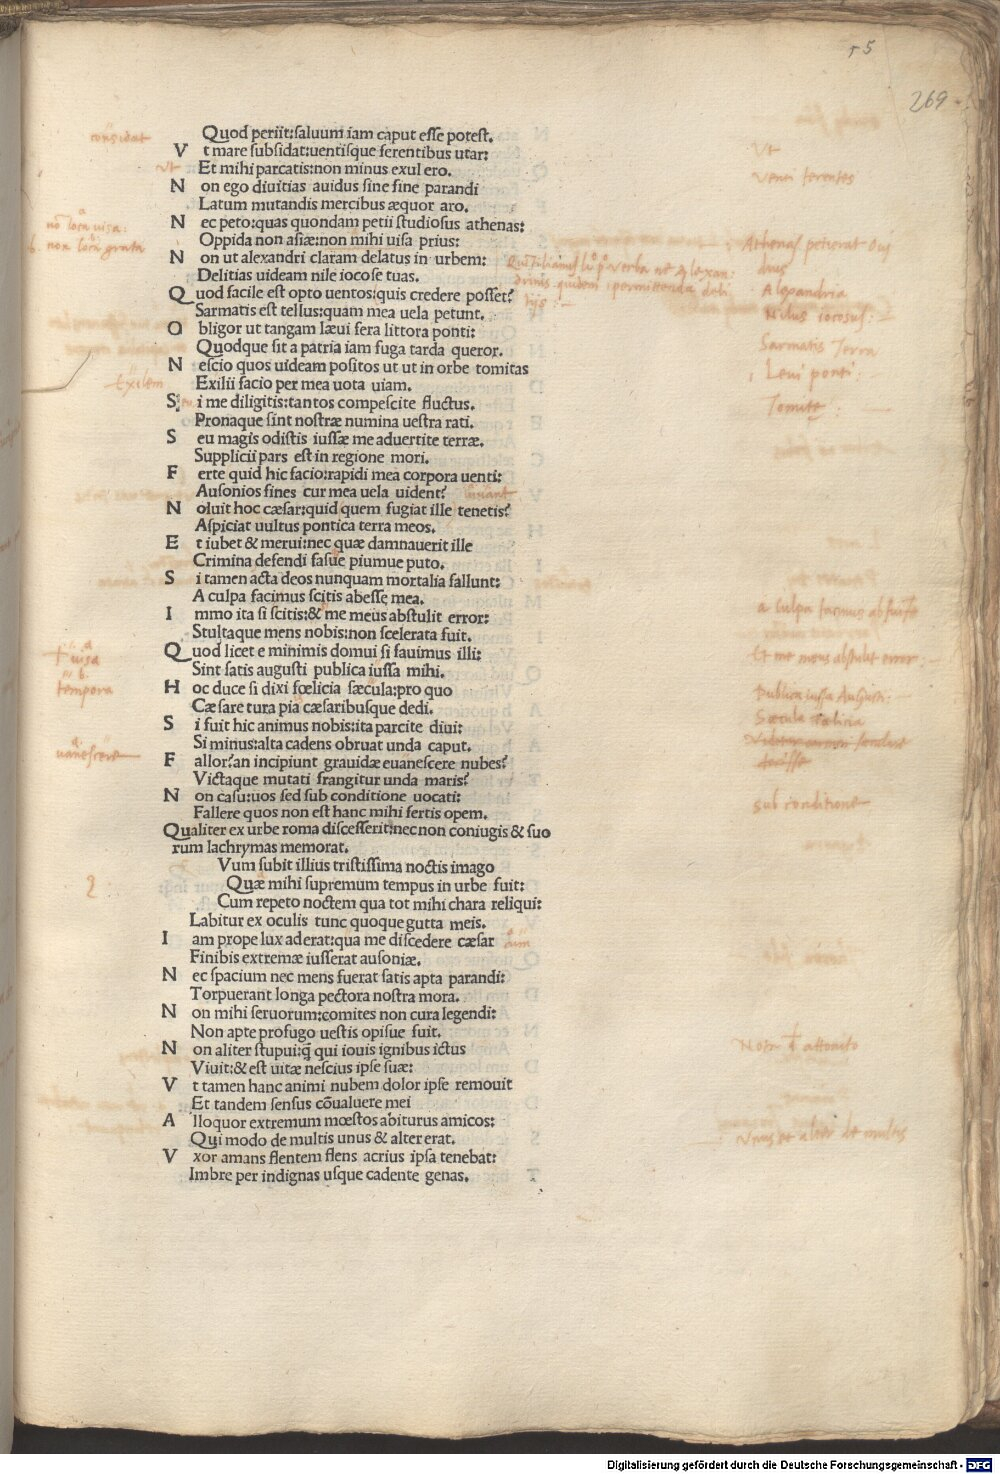 r 5
269
Quod periit:saluum iam caput esse potest.
V t mare subsidat:uentisque ferentibus utar:
Et mihi parcatis:non minus exul ero.
N on ego diuitias auidus sine fine parandi
Latum mutandis mercibus æquor aro.
N ec peto:quas quondam petii studiosus athenas:
Oppida non asiæ:non mihi uisa prius:
N on ut alexandri claram delatus in urbem:
Delitias uideam nile iocose tuas.
Q uod facile est opto uentos:quis credere posset?
Sarmatis est tellus:quam mea uela petunt.
O bligor ut tangam læui fera littora ponti:
Quodque sit a patria iam fuga tarda queror.
N escio quos uideam positos ut ut in orbe tomitas
Exilii facio per mea uota uiam.
S i me diligitis:tantos compescite fluctus.
Pronaque sint nostræ numina uestra rati.
S eu magis odistis iussæ me aduertite terræ.
Supplicii pars est in regione mori.
F erte quid hic facio:rapidi mea corpora uenti:
Ausonios fines cur mea uela uident?
N oluit hoc cæsar:quid quem fugiat ille tenetis?
Aspiciat uultus pontica terra meos.
E t iubet & merui:nec quæ damnauerit ille
Crimina defendi fasue piumue puto.
S i tamen acta deos nunquam mortalia fallunt:
A culpa facimus scitis abesse mea.
I mmo ita si scitis:& me meus abstulit error:
Stultaque mens nobis:non scelerata fuit.
Q uod licet e minimis domui si fauimus illi:
Sint satis augusti publica iussa mihi.
H oc duce si dixi fœlicia sæcula:pro quo
Cæsare tura pia cæsaribusque dedi.
S i fuit hic animus nobis:ita parcite diui:
Si minus:alta cadens obruat unda caput.
F allor?an incipiunt grauidæ euanescere nubes?
Victaque mutati frangitur unda maris?
N on casu:uos sed sub conditione uocati:
Fallere quos non est hanc mihi fertis opem.
Qualiter ex urbe roma discesserit:necnon coniugis & suo
rum lachrymas memorat.
Vum subit illius tristissima noctis imago
Quæ mihi supremum tempus in urbe fuit:
Cum repeto noctem qua tot mihi chara reliqui:
Labitur ex oculis tunc quoque gutta meis.
I am prope lux aderat:qua me discedere cæsar
Finibis extremæ iusserat ausoniæ.
N ec spacium nec mens fuerat satis apta parandi:
Torpuerant longa pectora nostra mora.
N on mihi seruorum:comites non cura legendi:
Non apte profugo uestis opisue fuit.
N on aliter stupui:q̃ qui iouis ignibus ictus
Viuit:& est uitæ nescius ipse suæ:
V t tamen hanc animi nubem dolor ipse remouit
Et tandem sensus cõualuere mei
A lloquor extremum mœstos abiturus amicos:
Qui modo de multis unus & alter erat.
V xor amans flentem flens acrius ipsa tenebat:
Imbre per indignas usque cadente genas.
considat
ut
Exilem
uisa
tempora
uanescere
2
Ut
Venti ferentes
Athenas petierat Oui
dius
Alexandria
Nilus iocosus:
Sarmatis Terra
Leui ponti:
Tomite:
a culpa facinus abfuisse
Et me meus abstulit error:
Publica iussa Augusti:
Sæcula fælicia
sub conditione
attonito
Vnus et alter de multis
Digitalisierung gefördert durch die Deutsche Forschungsgemeinschaft - DFG